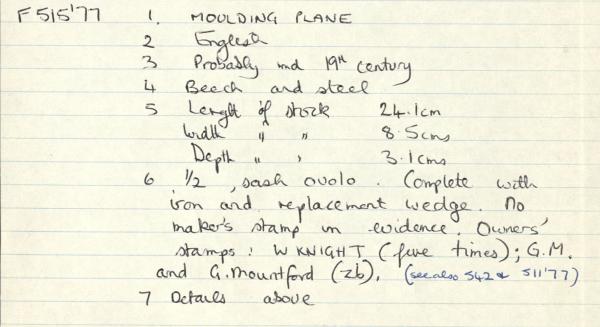 F 515'77 1. MOULDING PLANE
2 English
3 Probably mid 19th century
4 Beech and steel
5 Length of stock 24.1cm
Width " " 8.5cms
Depth " " 3.1cms
6 1/2, sash ovolo. Complete with
iron and replacement wedge. No
maker's stamp in evidence. Owners'
stamps: W KNIGHT (five times); G.M.
and G. Mountford (zb). (see also 542 & 511'77)
7 Details above